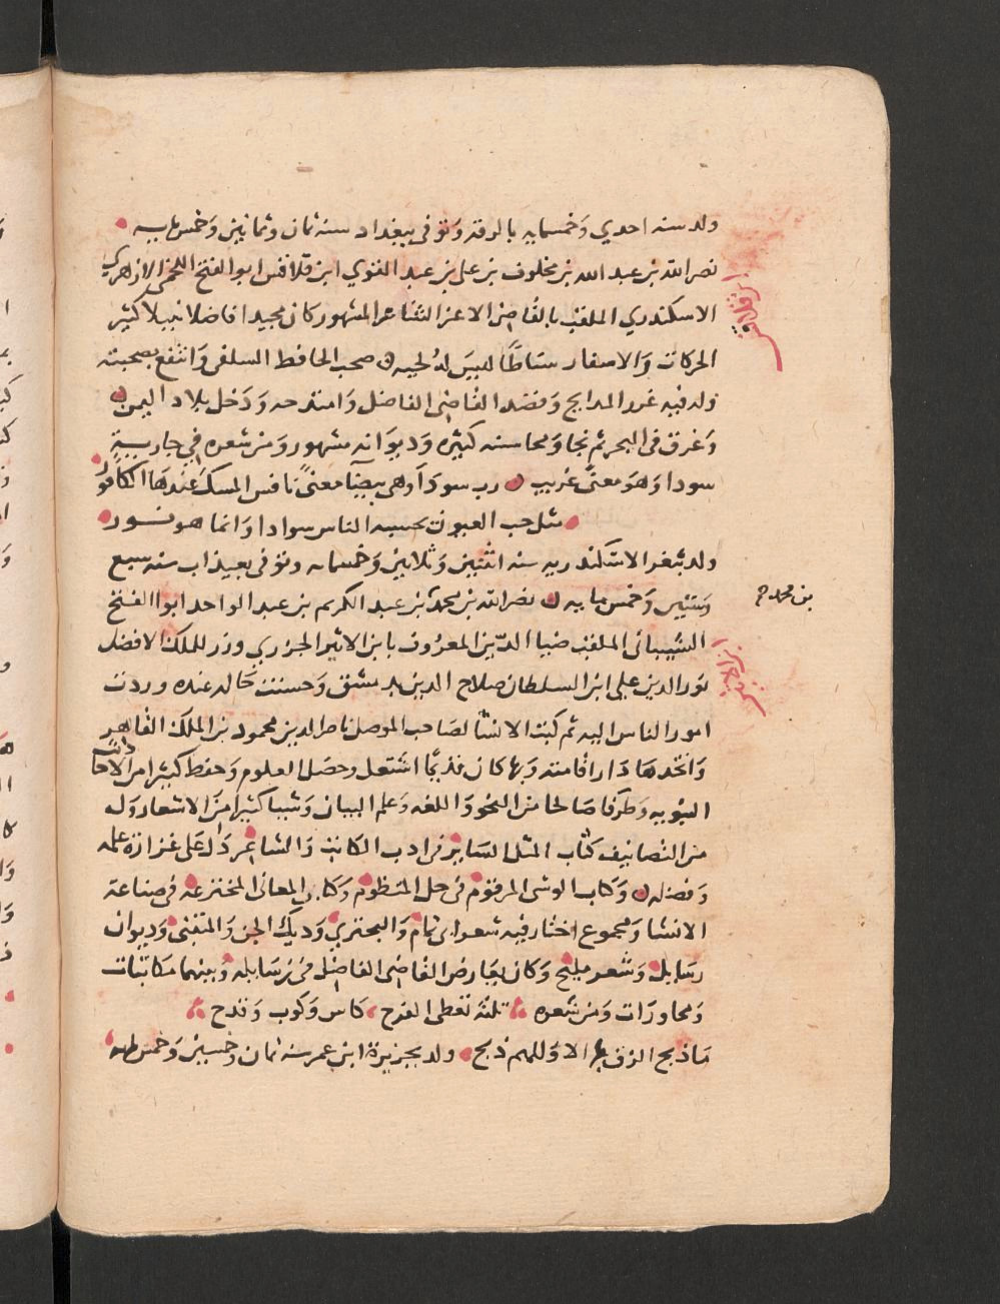 ولد سنه احدي وَخمسمايه بالرقه وَتوفى ببغداد سنه ثمان وثمانين وَخمس مايه
نصر الله بن عبد الله بن مخلوف بن على بن عبد القوي ابن قلاقس ابو الفتح اللخمى الازهري
ابن قلاقس
الاسكندري الملقب بالقاضى الاعز الشاعر المشهور كان مجيدا فاضلا نبيلا كثير
الحركات وَالاسفار سناطًا ليس له لحيه صحب الحافظ السلفى وَانتفع بصحبته
وله فيه غرر المدايح وَقصد القاضى الفاضل وَامتدحه وَدَخل بلاد اليمن
وَغرق فى البحر ثم نجا وَمحاسنه كثيره وَديوَانه مشهور وَمن شعره في جارية
سودا وَهوَ معنًى غريب رب سودَآ وَهى بيضآ معنًى نافس المسكَ عندَها الكافورُ
مثل حب العيون يحسبه الناس سوادا وَانما هو نور
ولد بثغر الاسكندريه سنه اثنين وَثلاثين وَخمسمايه وتوفى بعيذاب سنه سبع
وَستين وَخمس مايه نصر الله بن محمد بن عبد الكريم بن عبد الواحد ابو الفتح
بن محمد
الشيبانى الملقب ضيا الدّين المعرُوف بابن الاثير الجزري وزر للملك الافضل
ابن الاثير
نور الدين على ابن السلطان صلاح الدين بدمشق وَحسنت حَاله عنده وردت
امور الناس اليه ثم كتب الانشآ لصَاحب الموصل ناصر الدين محمود بن الملك القاهر
وَاتخدهَا دَار اقامته وَبها كان قديمًا اشتغل وحصَل العلوم وَحفظ كثيرا من الاحا
ديث
النبويه وَطرَفا صَالحا من النحو وَاللغه وَعلم البيان وَشيا كثيرا من الاشعار وَله
من التصانيف كتاب المثل السَاير فى ادب الكاتب وَالشاعر دَل على غزارة علمه
وَفضله وَكتاب الوشى المرقوم فى حل المنظوم وَكتاب المعانى المخترعه فى صناعة
الانشا وَمجموع اختار فيه شعر ابى تمام وَالبحتري وَديك الجن وَالمتنبى وَديوان
رسَايله وَشعر مليح وَكان يعَارض القاضى الفاضل فى رسَايله وَبينهما مكاتبات
وَمحاورَات وَمن شعره ثلثة تعطى الفرح كاس وَكوب وَقدح
مَا ذبح الزق بها الا وَللهم ذبح ولد بجزيرة ابن عمر سنه ثمان وخمسين وَخمس مايه